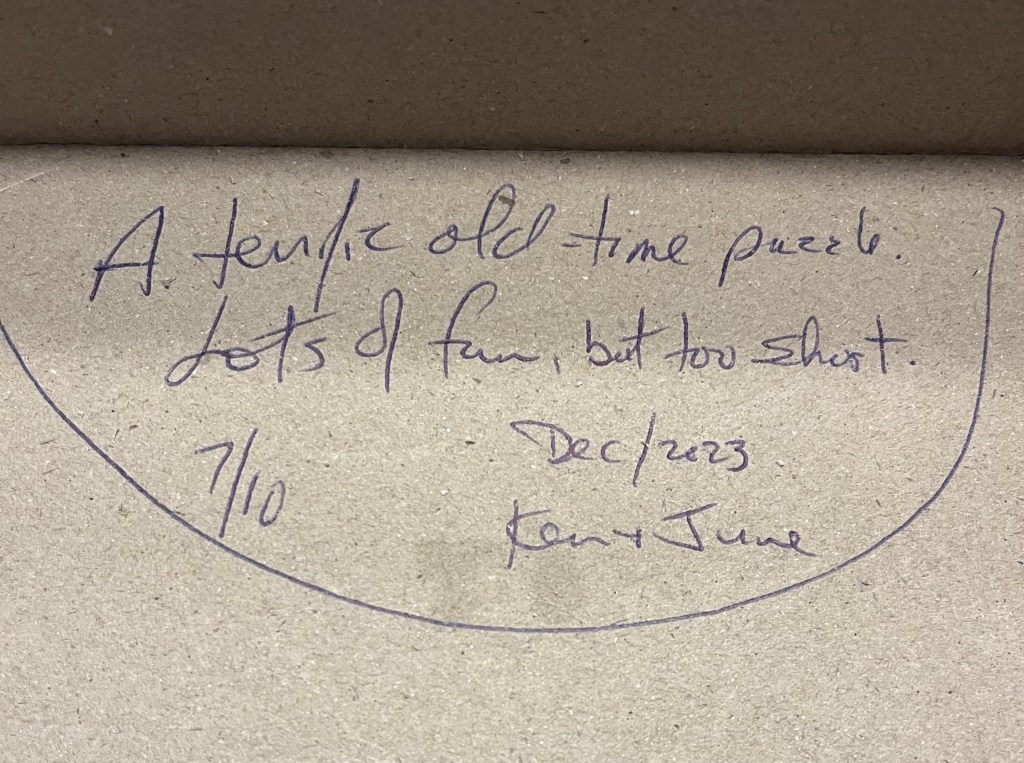 A terrific old-time puzzle.
Lots of fun, but too short.
7/10
Dec/2023
Ken + June